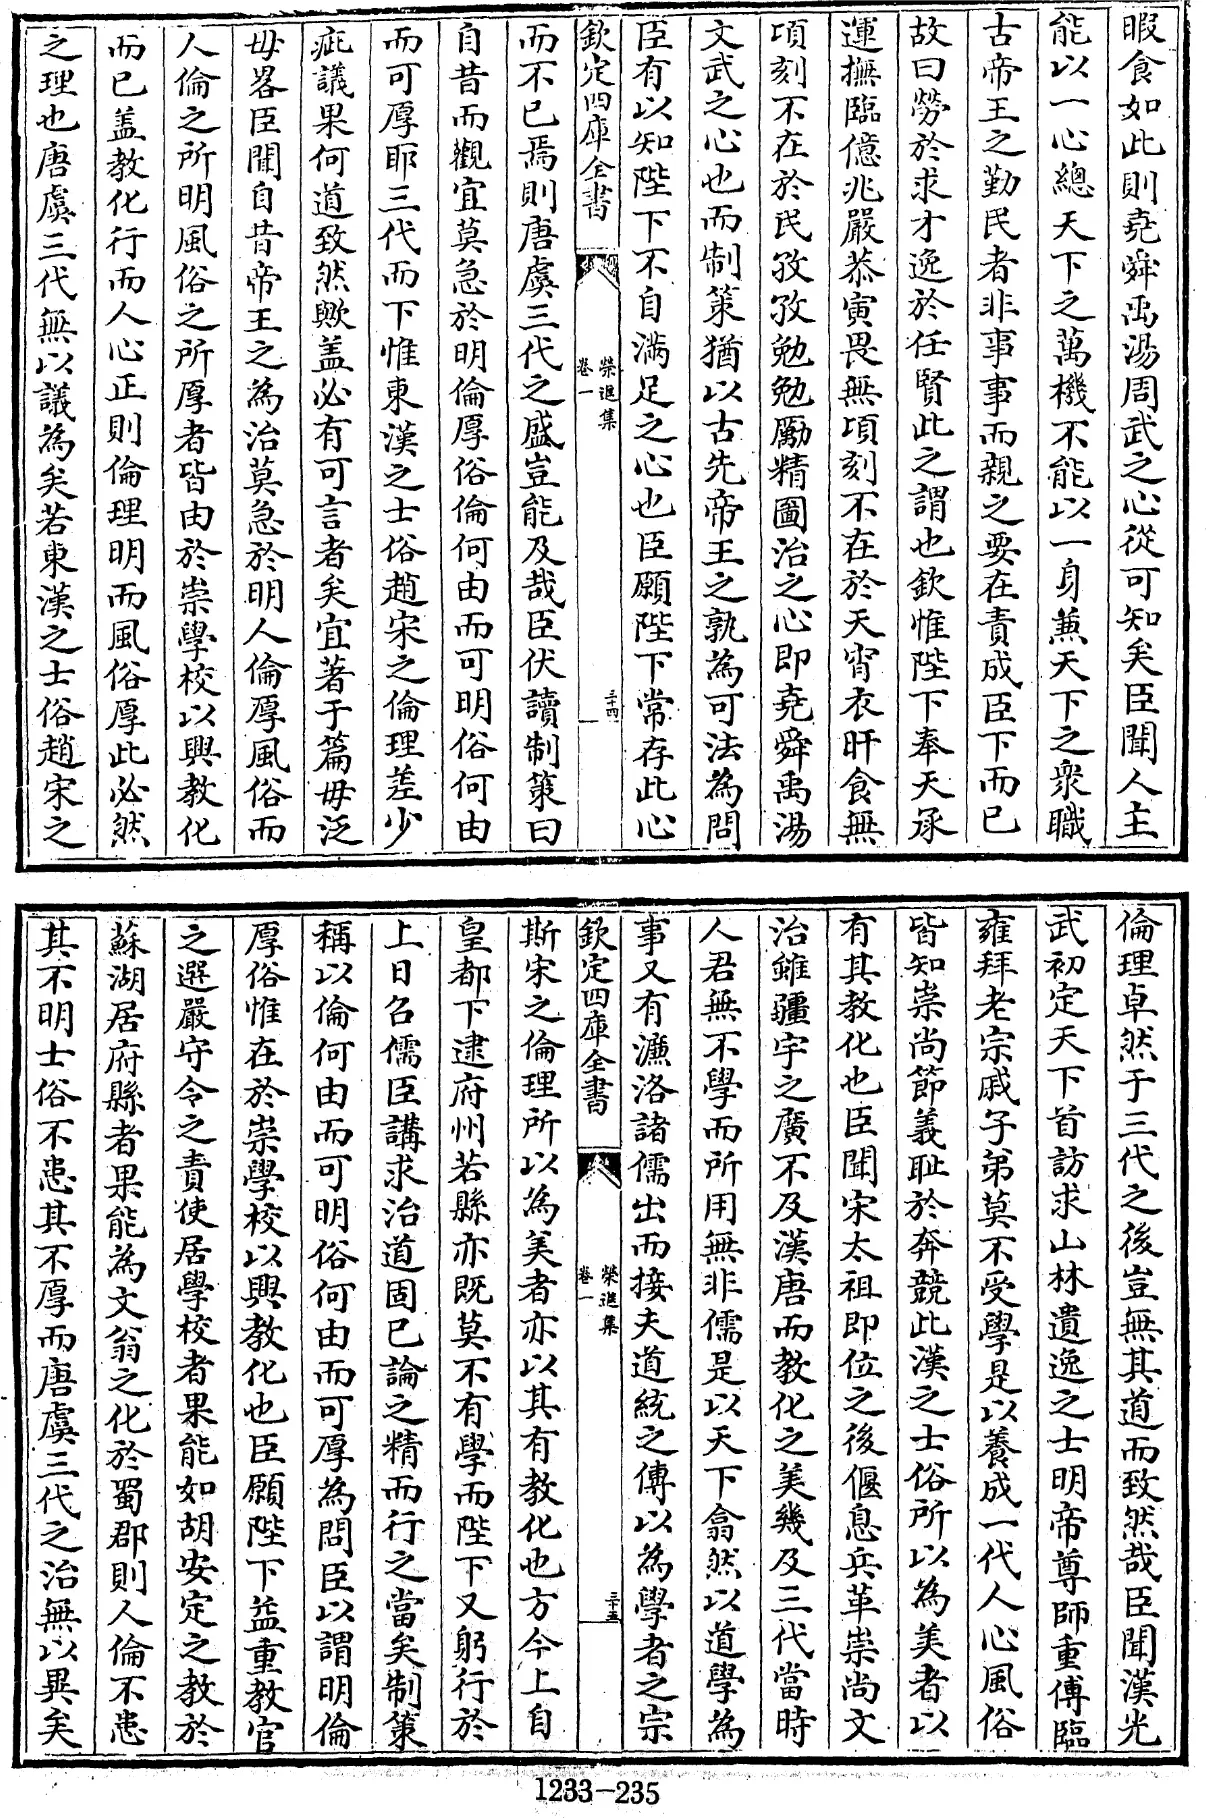 暇食如此則堯舜禹湯周武之心從可知矣臣聞人主
能以一心總天下之萬機不能以一身兼天下之衆職
古帝王之勤民者非事事而親之要在責成臣下而已
故曰勞於求才逸於任賢此之謂也欽惟陛下奉天承
運撫臨億兆嚴恭寅畏無頃刻不在於天宵衣旰食無
頃刻不在於民孜孜勉勉勵精圖治之心即堯舜禹湯
文武之心也而制策猶以古先帝王之孰為可法為問
臣有以知陛下不自滿足之心也臣願陛下常存此心
欽定四庫全書
榮進集
卷一
三十四
而不已焉則唐虞三代之盛豈能及哉臣伏讀制策曰
自昔而觀宜莫急於明倫厚俗倫何由而可明俗何由
而可厚耶三代而下惟東漢之士俗趙宋之倫理差少
疵議果何道致然歟盖必有可言者矣宜著于篇毋泛
毋畧臣聞自昔帝王之為治莫急於明人倫厚風俗而
人倫之所明風俗之所厚者皆由於崇學校以興教化
而已盖教化行而人心正則倫理明而風俗厚此必然
之理也唐虞三代無以議為矣若東漢之士俗趙宋之
倫理卓然于三代之後豈無其道而致然哉臣聞漢光
武初定天下首訪求山林遺逸之士明帝尊師重傅臨
雍拜老宗戚子弟莫不受學是以養成一代人心風俗
皆知崇尚節義耻於奔競此漢之士俗所以為美者以
有其教化也臣聞宋太祖即位之後偃息兵革崇尚文
治雖疆宇之廣不及漢唐而教化之美幾及三代當時
人君無不學而所用無非儒是以天下翕然以道學為
事又有濂洛諸儒出而接夫道統之傳以為學者之宗
欽定四庫全書
榮進集
卷一
三十五
斯宋之倫理所以為美者亦以其有教化也方今上自
皇都下逮府州若縣亦既莫不有學而陛下又躬行於
上日召儒臣講求治道固已論之精而行之當矣制策
稱以倫何由而可明俗何由而可厚為問臣以謂明倫
厚俗惟在於崇學校以興教化也臣願陛下益重教官
之選嚴守令之責使居學校者果能如胡安定之教於
蘇湖居府縣者果能為文翁之化於蜀郡則人倫不患
其不明士俗不患其不厚而唐虞三代之治無以異矣
1233-235